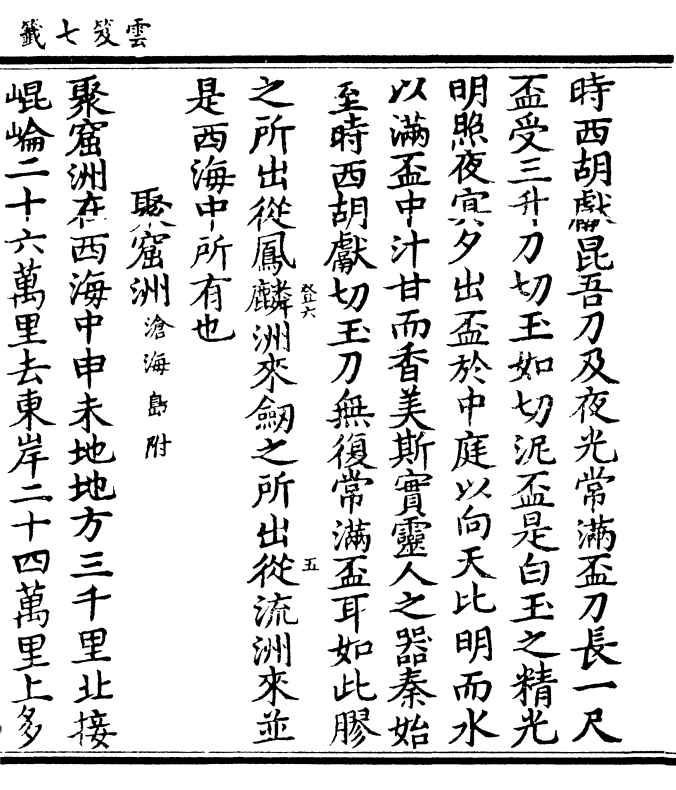 雲笈七籤
時西胡獻昆吾刀及夜光常滿盃刀長一尺
盃受三升刀切玉如切泥盃是白玉之精光
明照夜冥夕出盃於中庭以向天比明而水
以滿盃中汁甘而香美斯實靈人之器秦始
至時西胡獻切玉刀無復常滿盃耳如此膠
之所出從鳳麟洲來劒之所出從流洲來並
是西海中所有也
聚窟洲滄海島附
聚窟洲在西海中申未地地方三千里北接
崐崘二十六萬里去東岸二十四萬里上多
登六
五